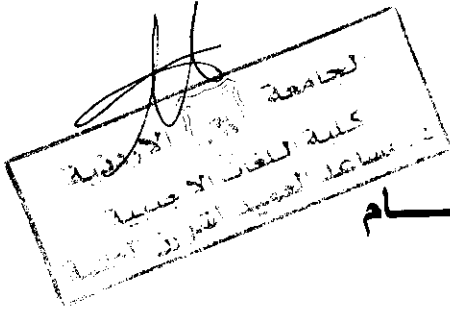 الجامعة الاردنية
كلية اللغات الاجنبية
مساعد العميد
ـــام